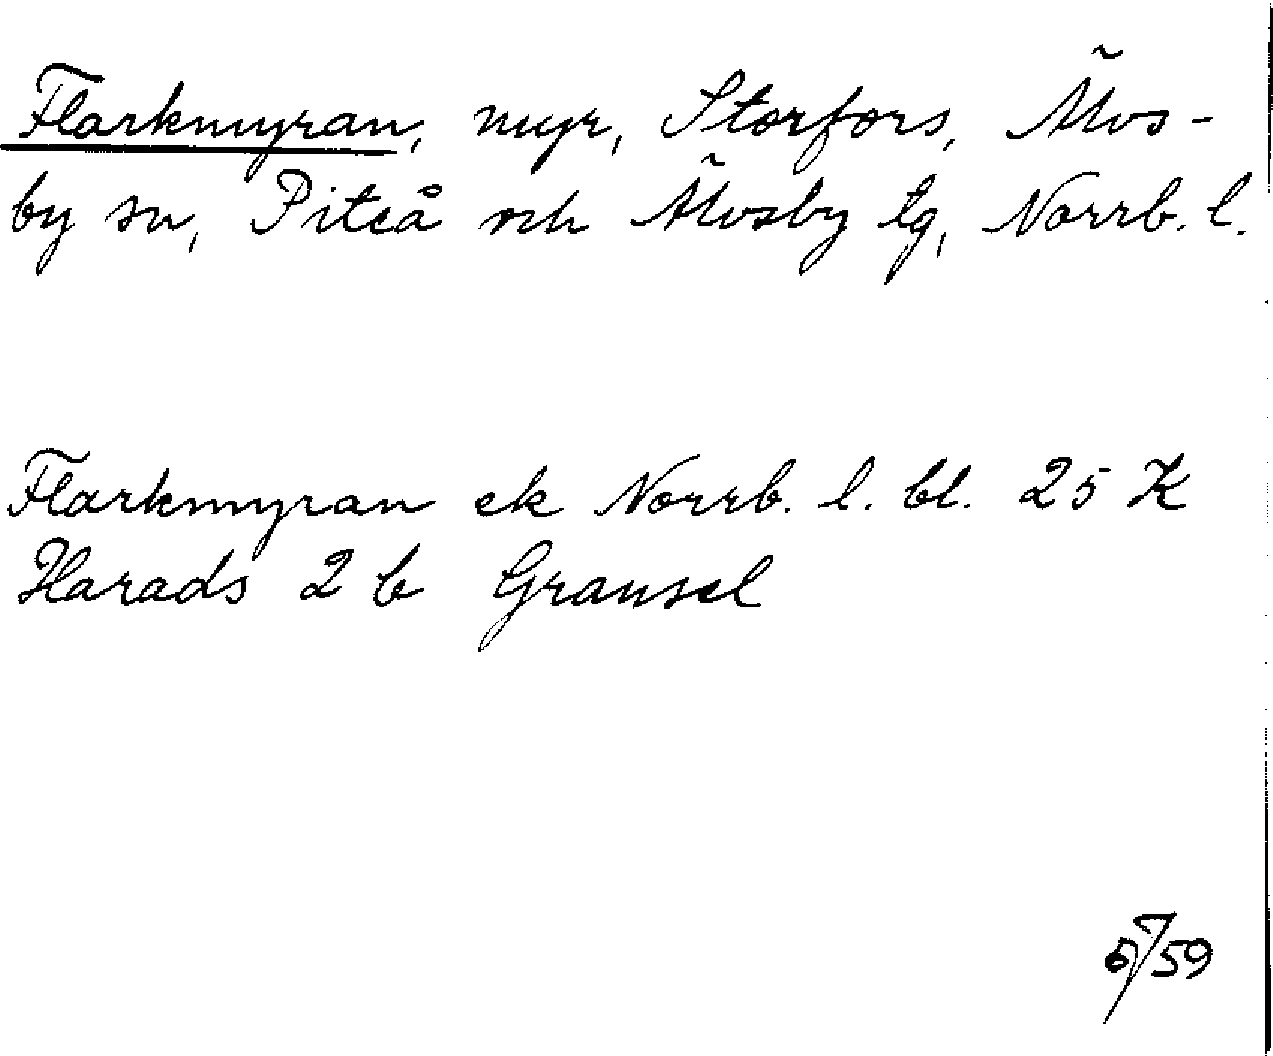 Flarkmyran, myr, Storfors, Älvs-
by sn, Piteå och Älvsby tg, Norrb. l.
Flarkmyran ek Norrb. l. bl. 25 K
Harads 2 b Gransel
59